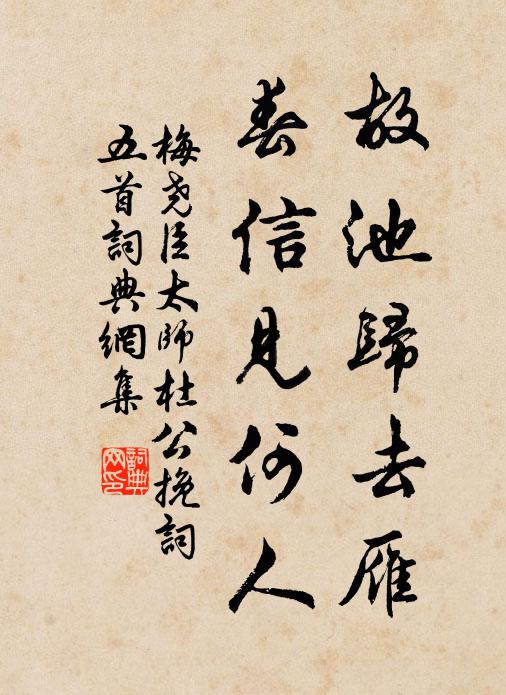 故池歸去雁
春信見何人
梅堯臣太師杜公挽詞
五首詞典網集
詞典網印